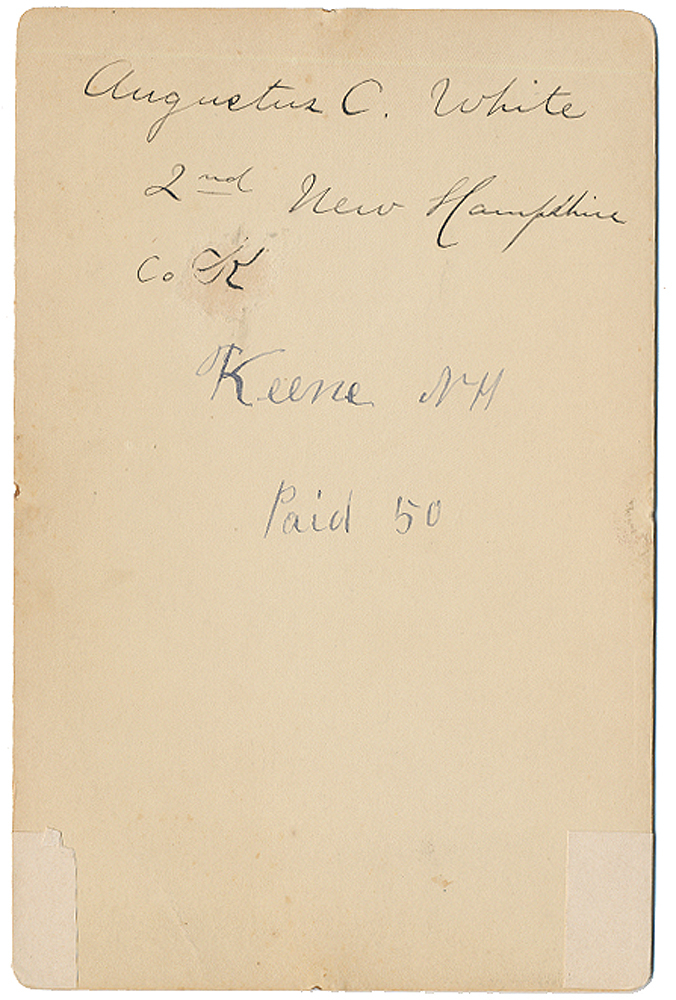 Augustus C. White
2nd New Hampshire
Co K
Keene NH
Paid 50